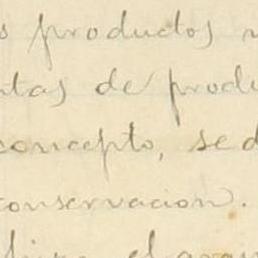 s productos
ntas de produ
concepto, se d
conservacion.